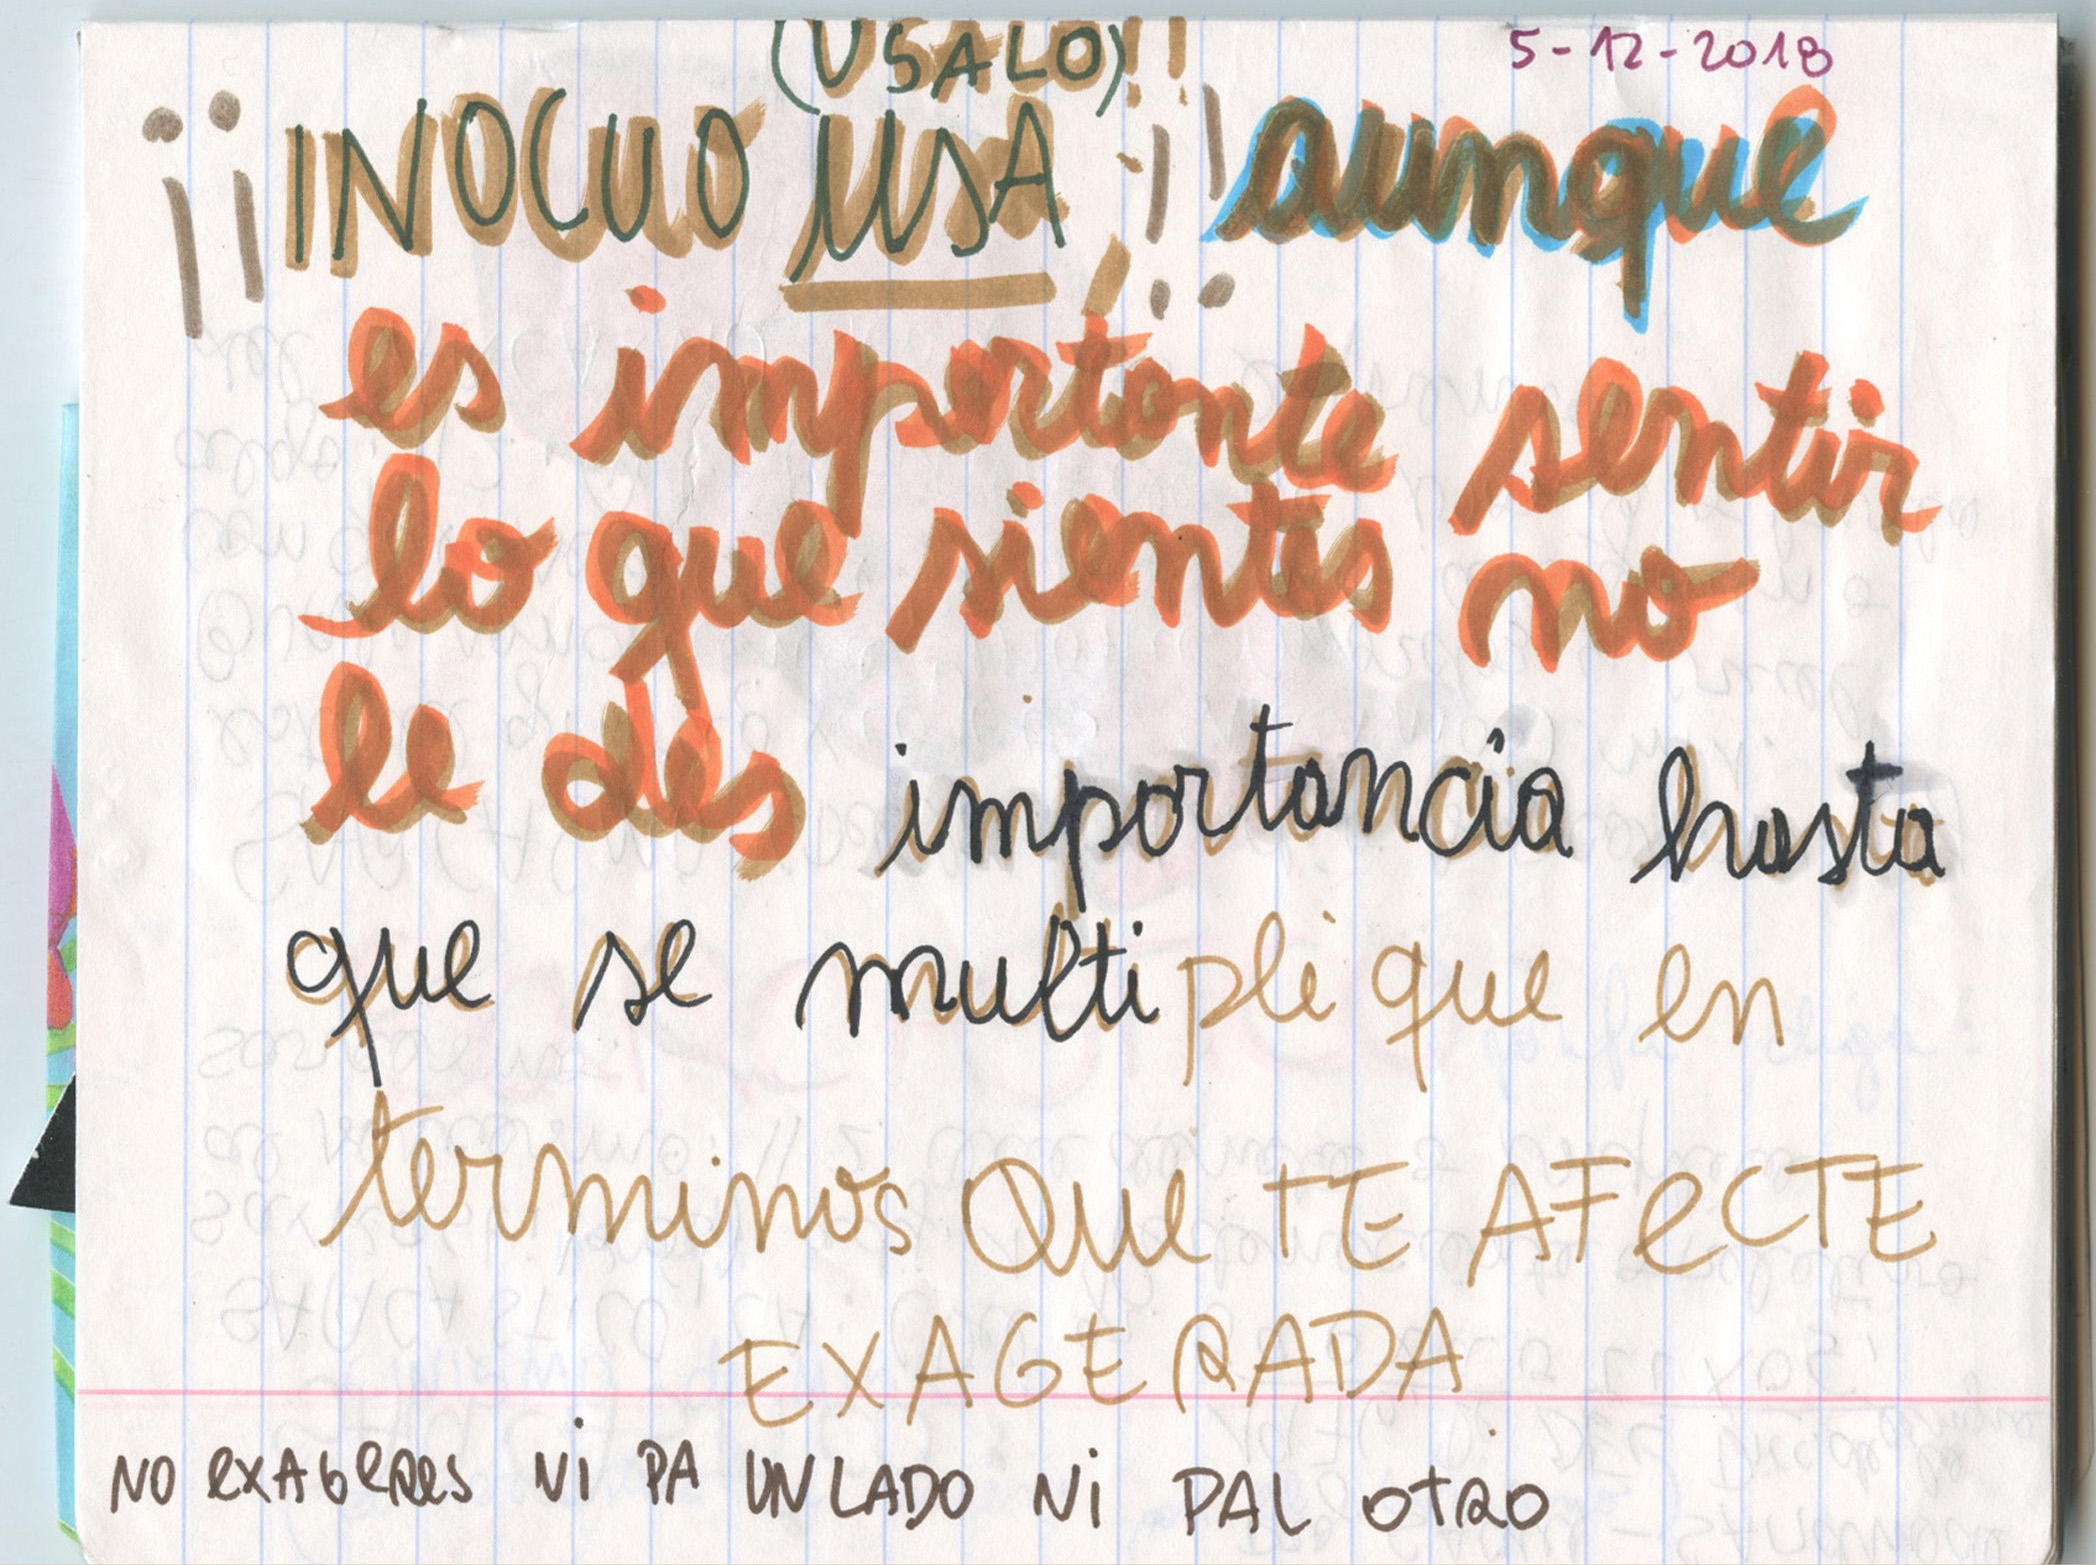 (USALO)!! 5-12-2018
¡¡INOCUO USA!! aunque
es importante sentir
lo que sientes no
le des importancia hasta
que se multiplique en
terminos que TE AFeCTE
EXAGERADA
NO exAGeRes Ni PA UN LADO Ni PAL OTRO